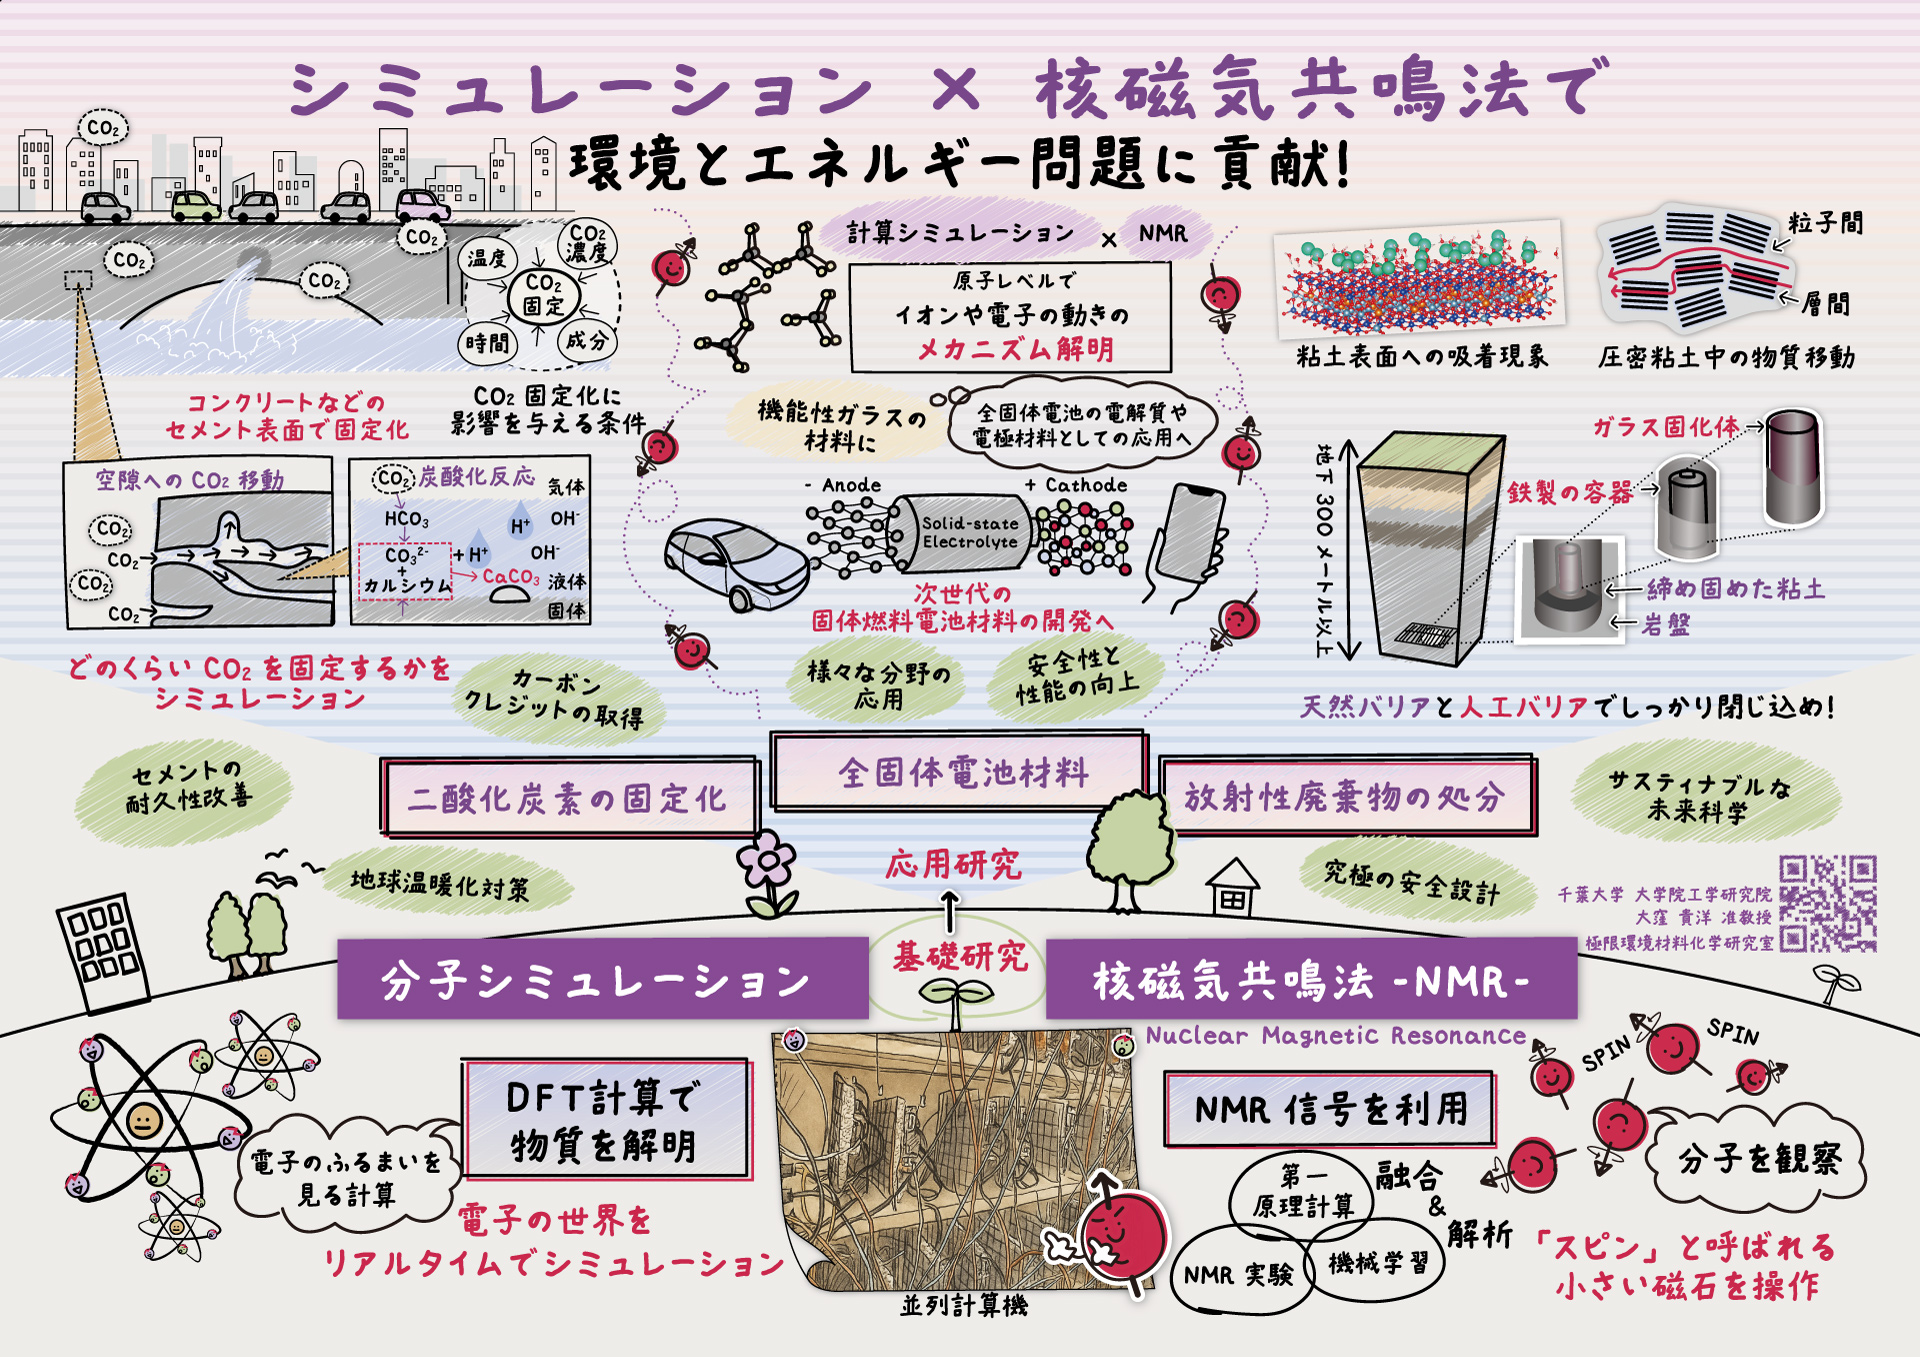 シミュレーション × 核磁気共鳴法で
環境とエネルギー問題に貢献!
CO₂
CO₂
CO₂
CO₂
温度
CO₂
濃度
CO₂
固定
時間
成分
コンクリートなどの
セメント表面で固定化
CO₂ 固定化に
影響を与える条件
空隙へのCO₂ 移動
CO₂
CO₂
CO₂
CO₂
CO₂ 炭酸化反応
気体
HCO₃
H⁺
OH⁻
CO₃²⁻
+
カルシウム
+ H⁺
OH⁻
CaCO₃
液体
固体
どのくらい CO₂ を固定するかを
シミュレーション
カーボン
クレジットの取得
計算シミュレーション × NMR
原子レベルで
イオンや電子の動きの
メカニズム解明
機能性ガラスの
材料に
全固体電池の電解質や
電極材料としての応用へ
- Anode
+ Cathode
Solid-state
Electrolyte
次世代の
固体燃料電池材料の開発へ
様々な分野の
応用
安全性と
性能の向上
粒子間
層間
粘土表面への吸着現象
圧密粘土中の物質移動
地下 300 メートル以上
ガラス固化体
鉄製の容器
締め固めた粘土
岩盤
天然バリアと人工バリアでしっかり閉じ込め!
セメントの
耐久性改善
二酸化炭素の固定化
全固体電池材料
放射性廃棄物の処分
サスティナブルな
未来科学
地球温暖化対策
応用研究
究極の安全設計
千葉大学 大学院工学研究院
大窪 貴洋 准教授
極限環境材料化学研究室
分子シミュレーション
基礎研究
核磁気共鳴法 -NMR-
Nuclear Magnetic Resonance
DFT計算で
物質を解明
電子のふるまいを
見る計算
電子の世界を
リアルタイムでシミュレーション
並列計算機
NMR 信号を利用
SPIN
SPIN
分子を観察
第一
原理計算
NMR 実験
機械学習
融合
&
解析
「スピン」と呼ばれる
小さい磁石を操作